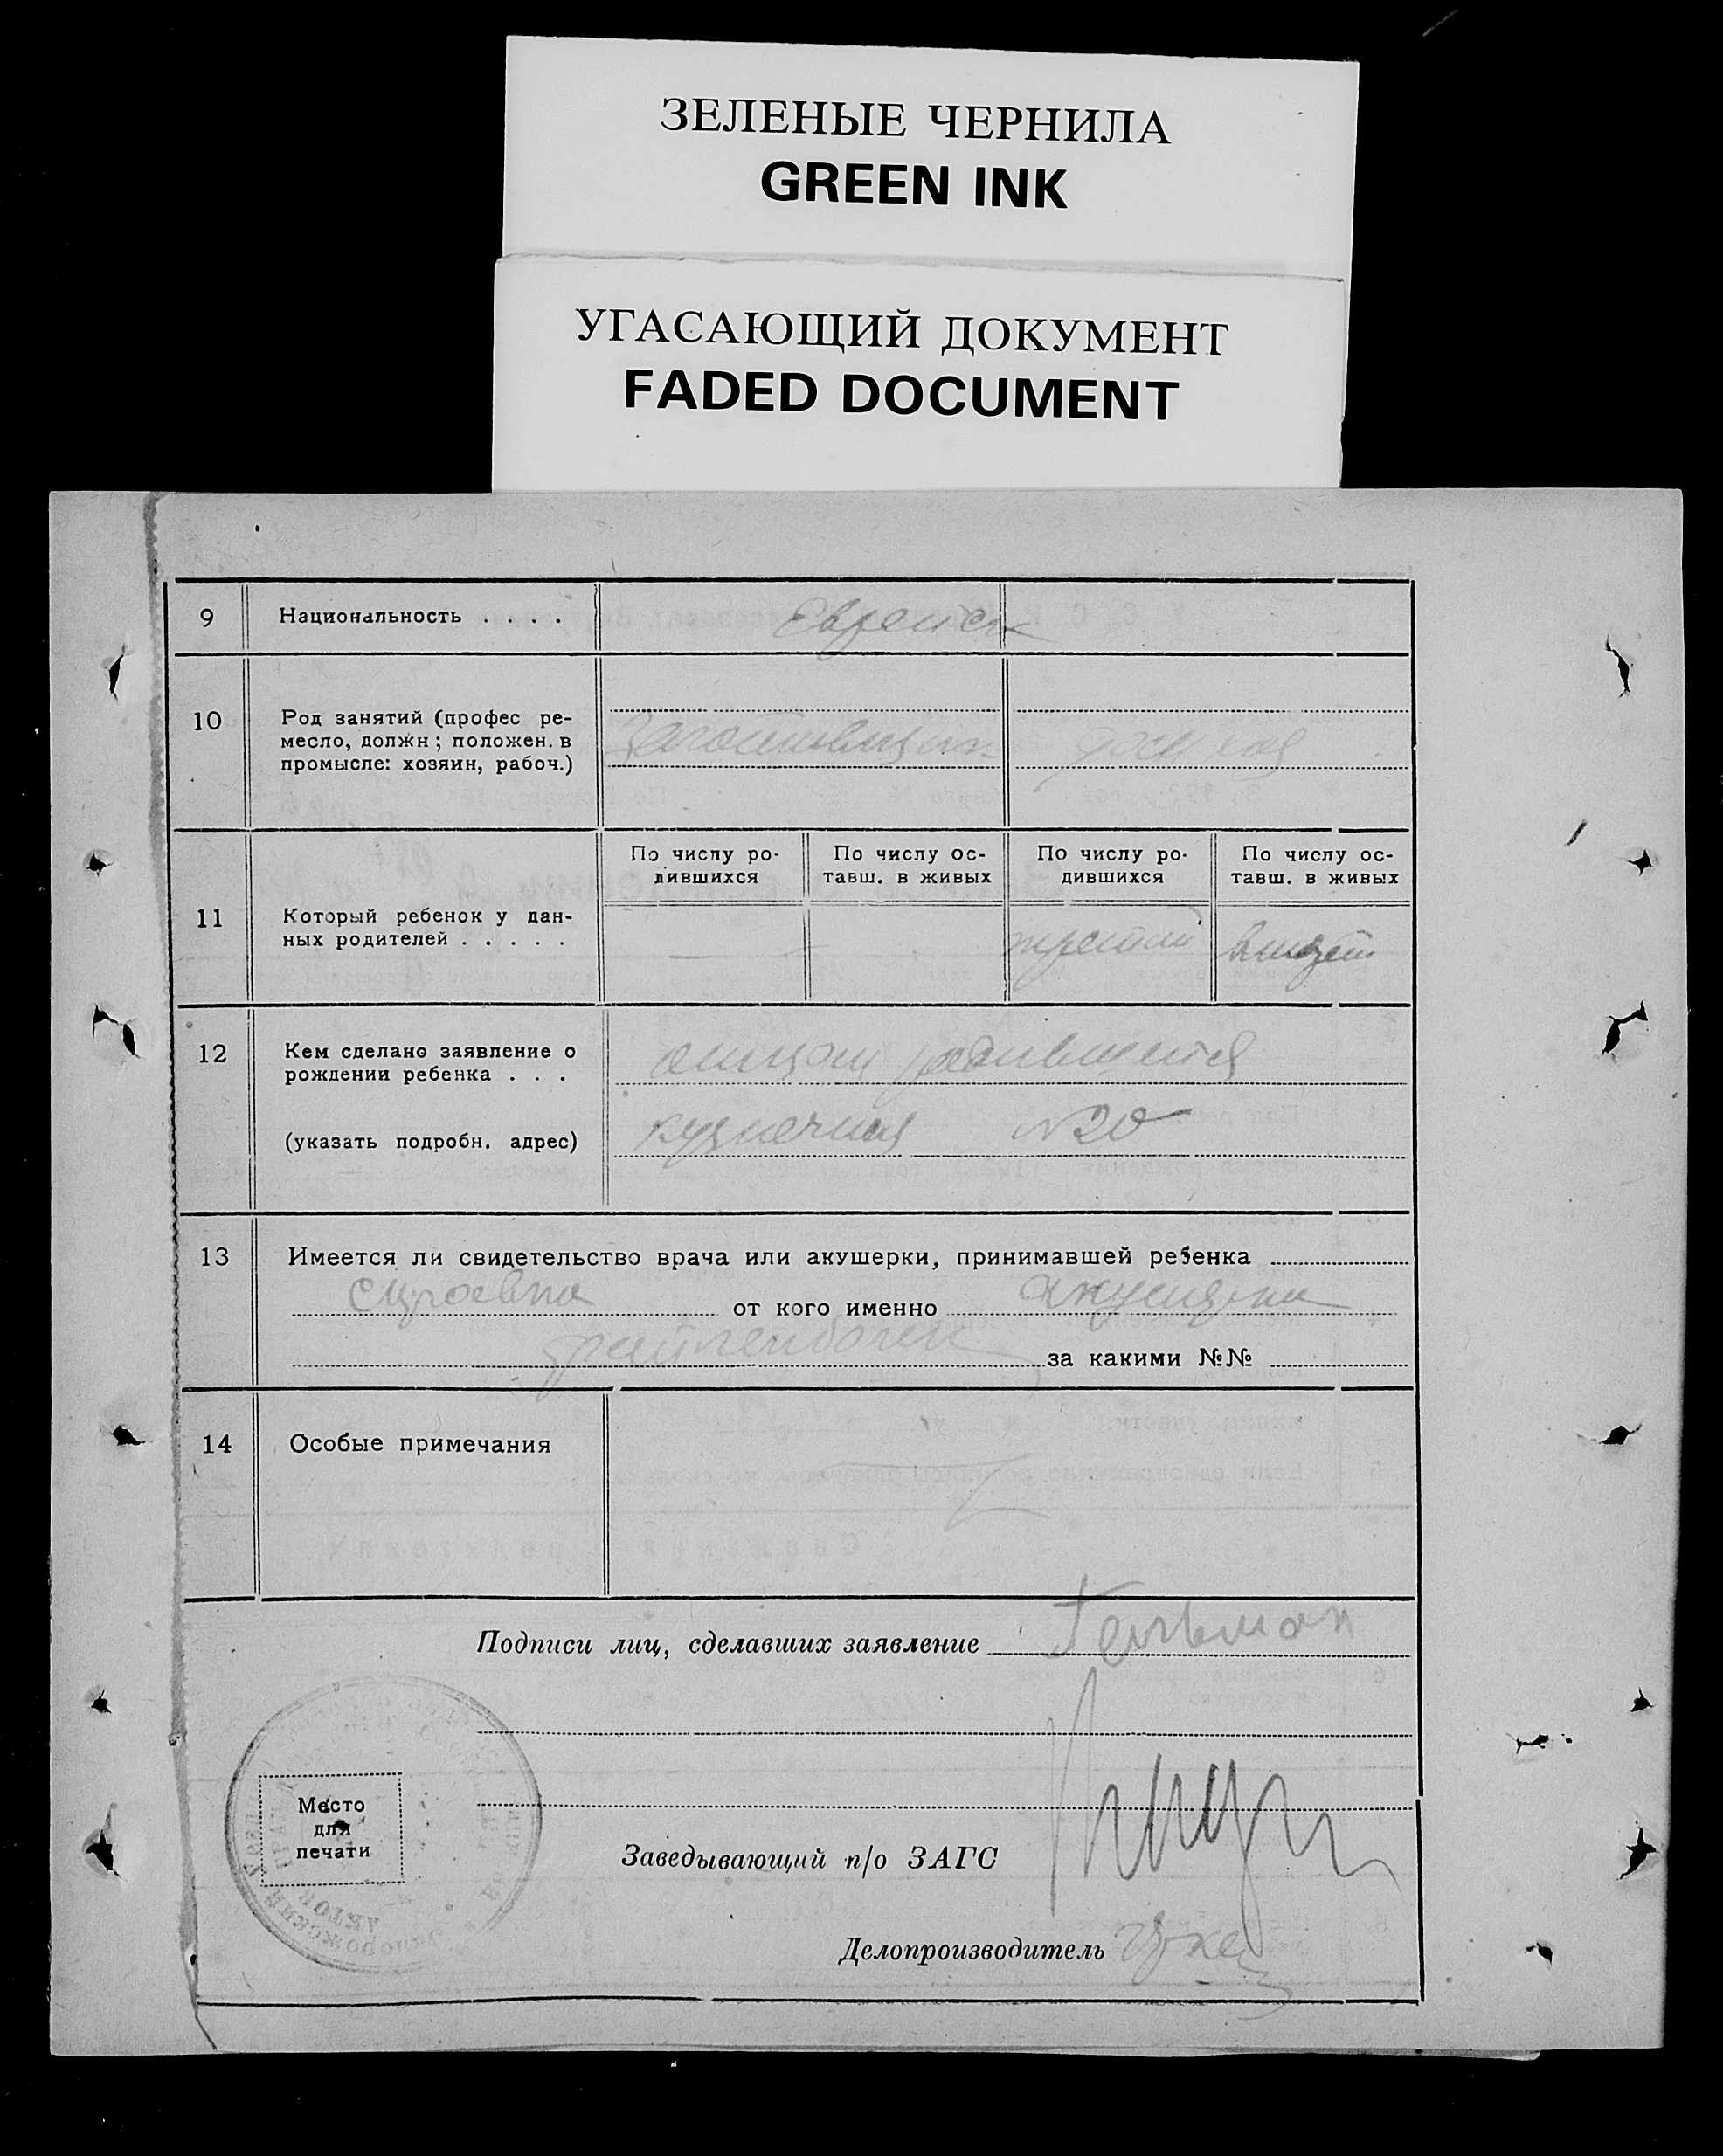 ЗЕЛЕНЫЕ ЧЕРНИЛА
GREEN INK
УГАСАЮЩИЙ ДОКУМЕНТ
FADED DOCUMENT
9 Национальность . . . . Еврейск
10 Род занятий (профес ре-
месло, должн; положен. в
промысле: хозяин, рабоч.)
По числу ро-
дившихся
По числу ос-
тавш. в живых
По числу ро-
дившихся
По числу ос-
тавш. в живых
11 Который ребенок у дан-
ных родителей . . . . . третий
12 Кем сделано заявление о
рождении ребенка . . . отцом родившегося
(указать подробн. адрес) Кузнечная №20
13 Имеется ли свидетельство врача или акушерки, принимавшей ребенка
справка от кого именно акушерки
за какими №№
14 Особые примечания
Подписи лиц, сделавших заявление Гельман
Место
для
печати
Заведывающий п/о ЗАГС
Делопроизводитель